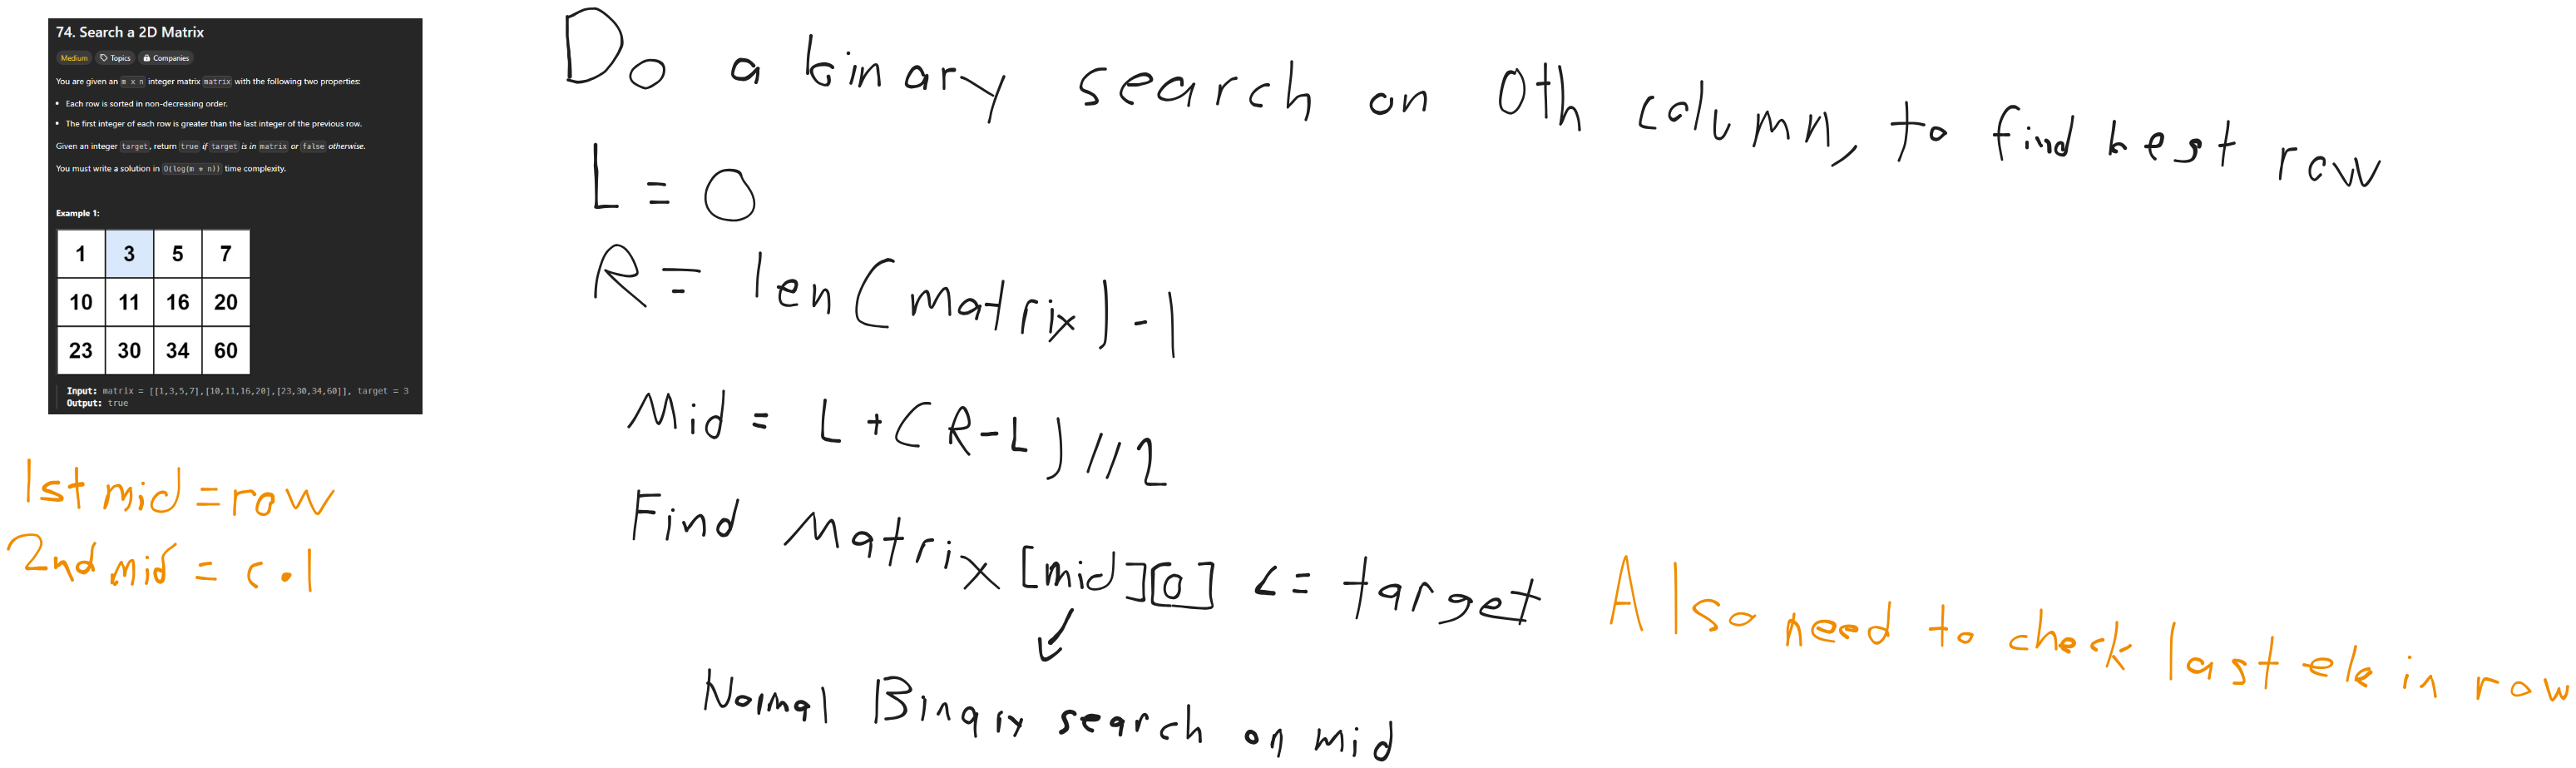 74. Search a 2D Matrix
Medium Topics Companies
You are given an m x n integer matrix matrix with the following two properties:
• Each row is sorted in non-decreasing order.
• The first integer of each row is greater than the last integer of the previous row.
Given an integer target, return true if target is in matrix or false otherwise.
You must write a solution in O(log(m * n)) time complexity.
Example 1:
1 3 5 7
10 11 16 20
23 30 34 60
Input: matrix = [[1,3,5,7],[10,11,16,20],[23,30,34,60]], target = 3
Output: true
1st mid = row
2nd mid = col
Do a binary search on 0th column, to find best row
L = 0
R = len(matrix)-1
Mid = L+(R-L)//2
Find Matrix[mid][0] <= target
Also need to check last ele in row
Normal Binary search on mid